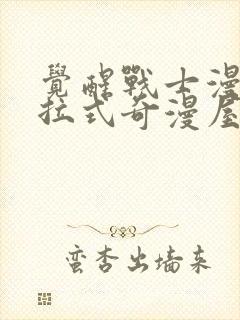 覺醒戰士漫
拉式奇漫屋
蛮杏出墙来